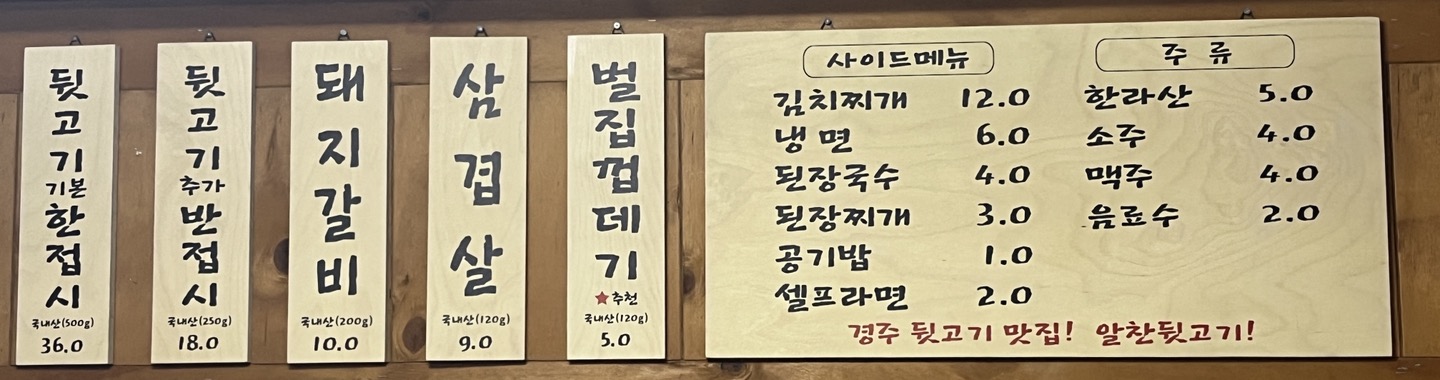 뒷고기
기본
한접시
국내산(500g)
36.0
뒷고기
추가
반접시
국내산(250g)
18.0
돼지갈비
국내산(200g)
10.0
삼겹살
국내산(120g)
9.0
벌집껍데기
★추천
국내산(120g)
5.0
사이드메뉴
김치찌개 12.0
냉면 6.0
된장국수 4.0
된장찌개 3.0
공기밥 1.0
셀프라면 2.0
주류
한라산 5.0
소주 4.0
맥주 4.0
음료수 2.0
경주 뒷고기 맛집! 알찬뒷고기!